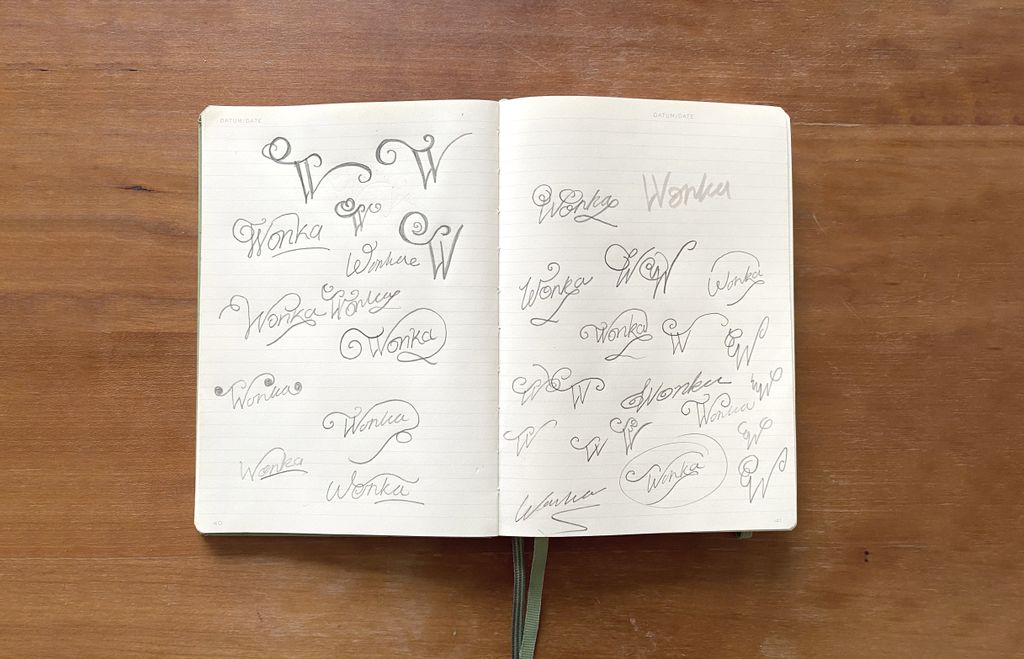 DATUM/DATE
W W
W
Wonka
W
Wonka
Wonka
Wonka
Wonka
Wonka
Wonka
Wonka
40
DATUM/DATE
Wonka
Wonka
W W
Wonka
Wonka
Wonka
W
W
W W
Wonka
W
Wonka
W
W
W
W
Wonka
W
Wonka
41